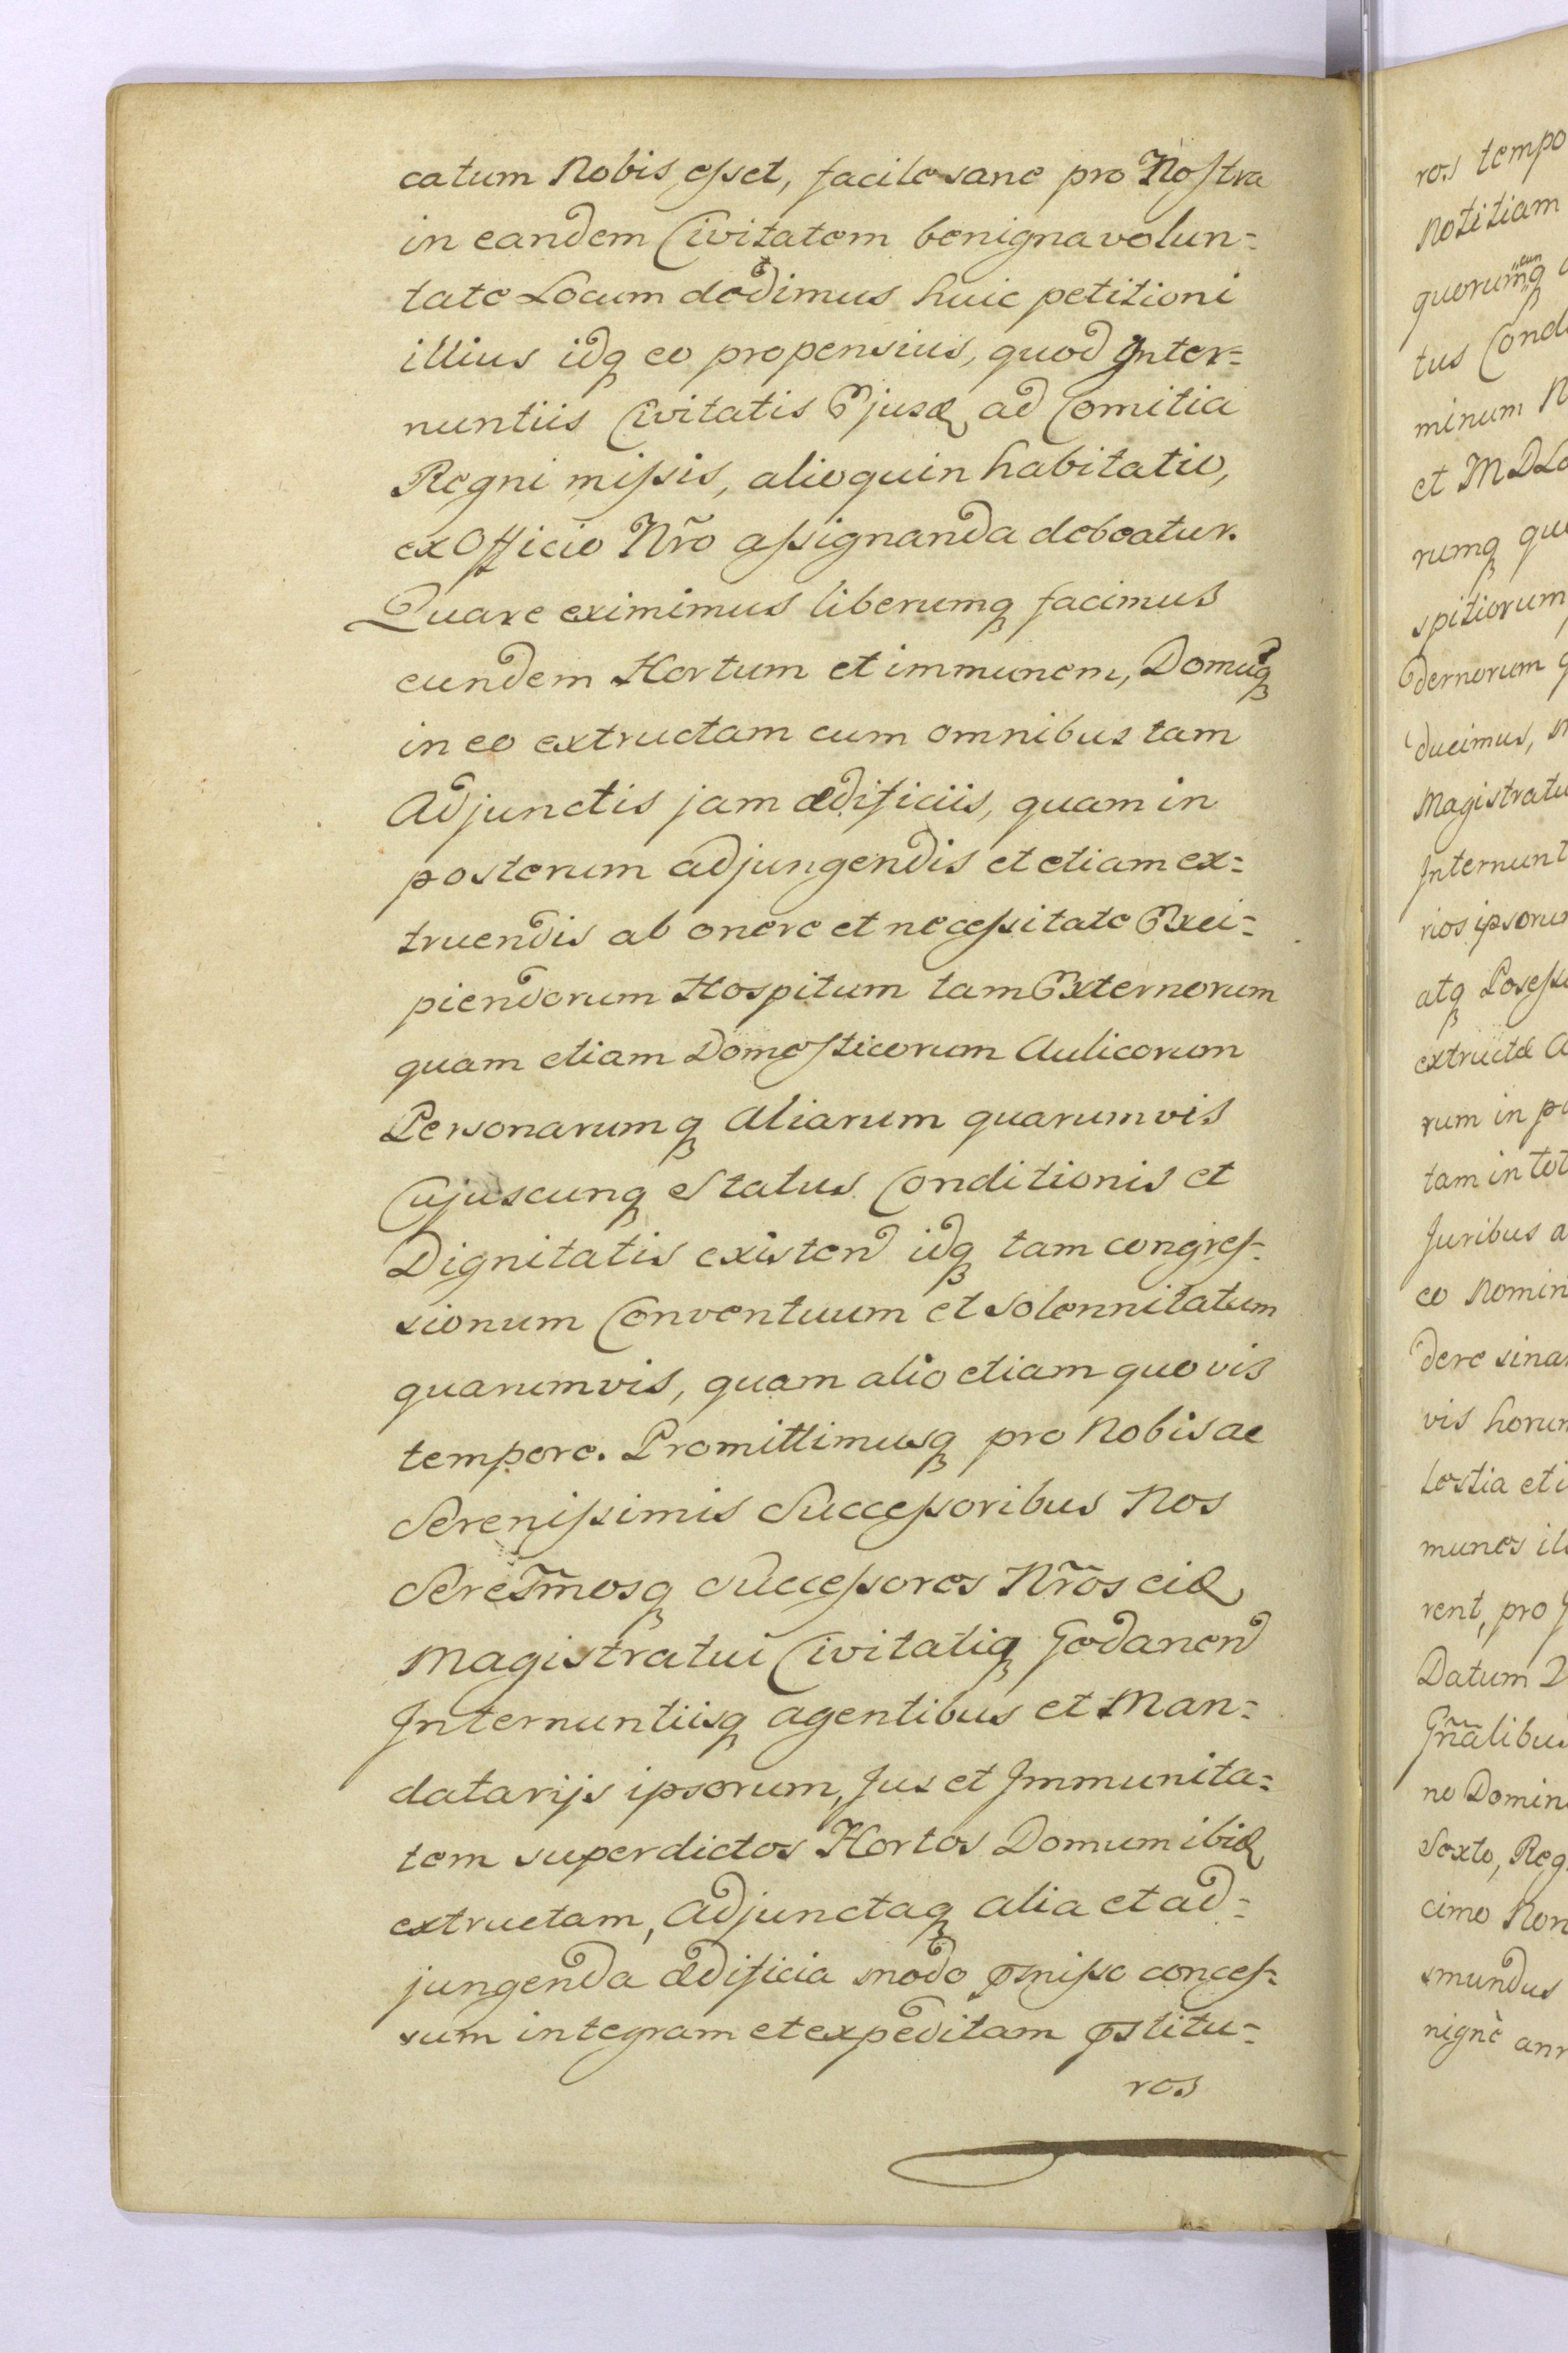 catum Nobis esset, facile sane pro Nostra
in eandem Civitatem benigna volun=
tate Locum dedimus huic petitioni
illius idq eo propensius, quod Inter=
nuntiis Civitatis Ejusd ad Comitia
Regni missis, alioquin habitatio,
ex Officio Nr̃o assignanda debeatur.
Quare eximimus liberumq facimus
eundem Hortum et immunem, Domuq
in eo extructam cum omnibus tam
Adjunctis jam ædificiis, quam in
posterum adjungendis et etiam ex=
truendis ab onere et necessitate Exci=
piendorum Hospitum tam Externorum
quam etiam Domesticorum Aulicorum
Personarumq Aliarum quarumvis
Cujuscunq Status Conditionis et
Dignitatis existen idq tam congres=
sionum Conventuum et Solennitatum
quarumvis, quam alio etiam quovis
tempore. Promittimusq pro Nobis ac
Serenissimis Successoribus Nos
Seres̃mosq Successores Nr̃os eid
Magistratui Civitatiq Gedanen
Internuntiisq agentibus et Man=
datarijs ipsorum, Jus et Immunita=
tem super dictos Hortos Domum ibid
extructam, Adjunctaq alia et ad=
jungenda ædificia modo
conces=
sum integram et expeditam
ros
ros tempo
Notitiam
tus Cond
minum N
et MDLo
rumq qu
spitiorum
dernorum q
ducimus,
Magistratu
Internunt
rios ipsoru
atq Posess
extructæ A
rum in p
tam in tot
Juribus a
eo Nomin
dere sina
vis horu
lestia et i
munes il
rent, pro
Datum
Gñalibus
no Domin
Sexto, Reg
cimo Non
smundus
nignè ann